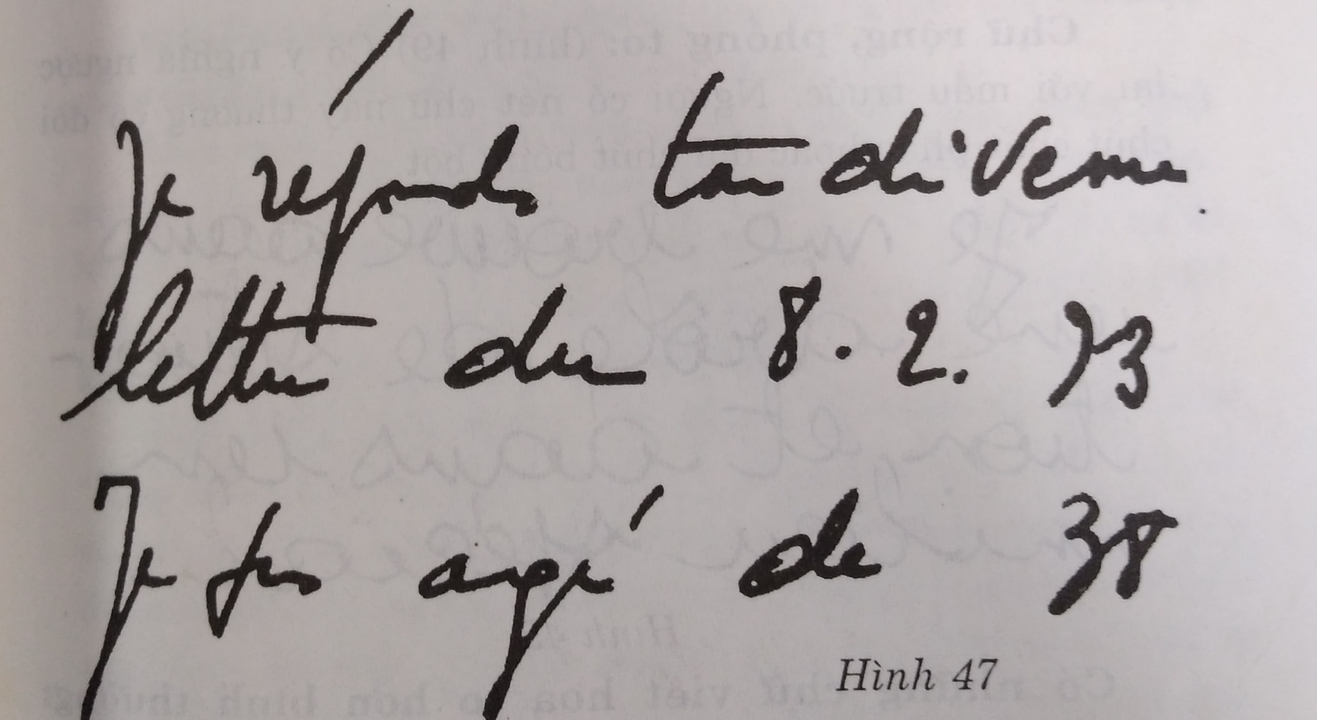 Je réponds tardivem
lettre du 8. 2. 93
Je suis agé de 38
Hình 47